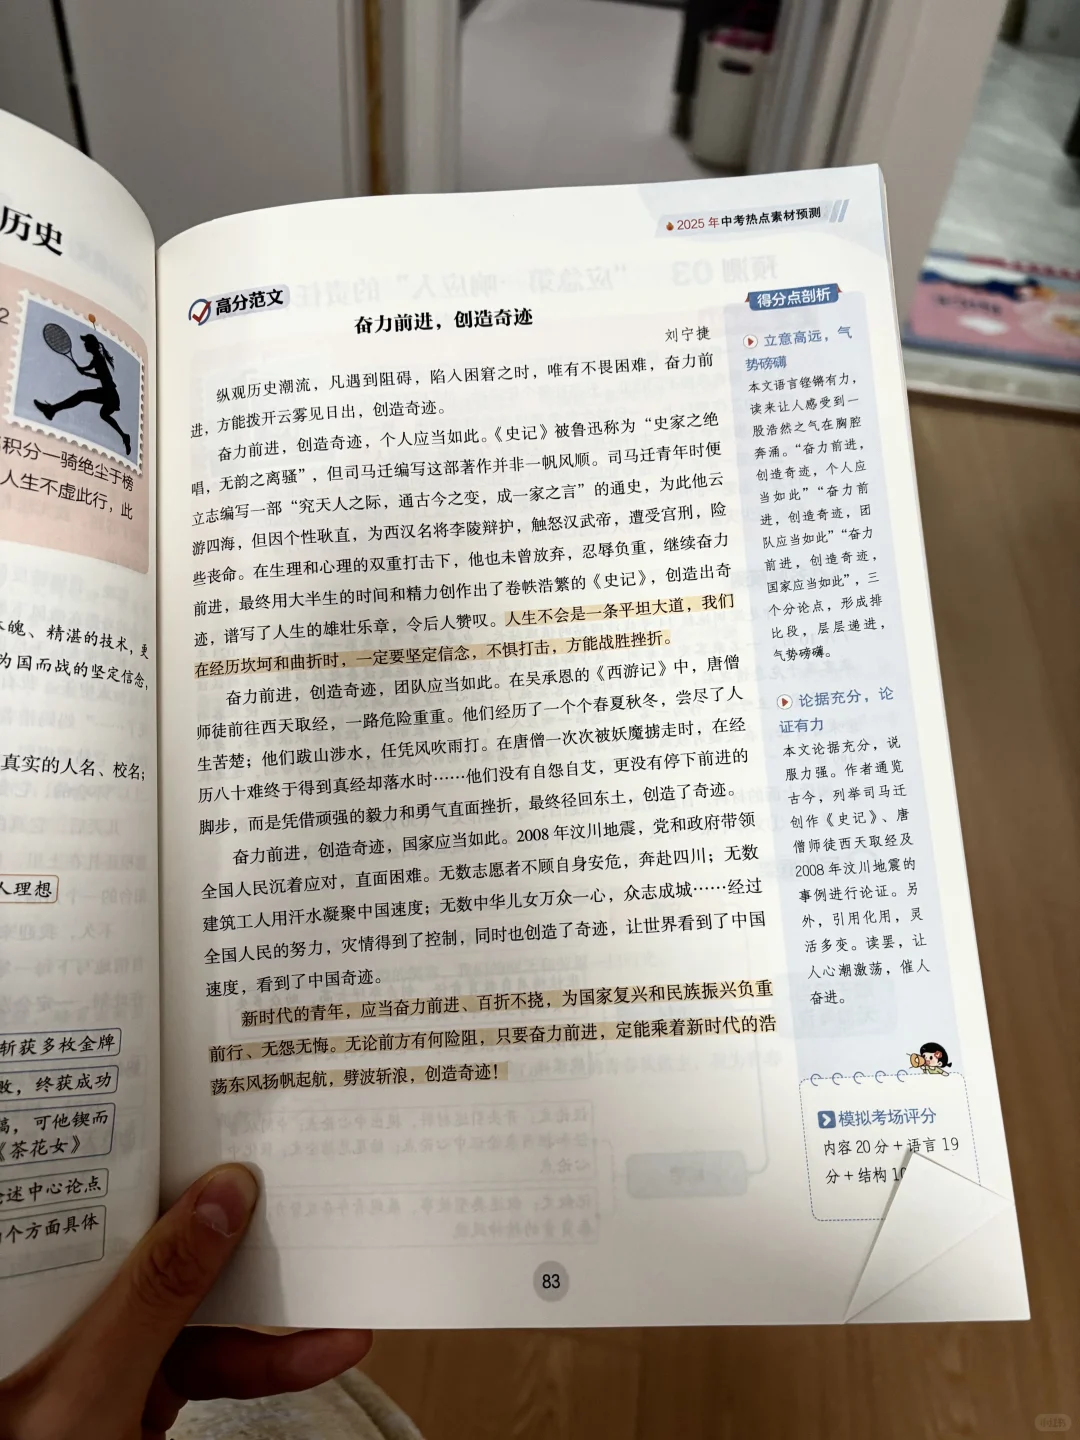 历史
积分一骑绝尘于榜
人生不虚此行，此
魄、精湛的技术，更
为国而战的坚定信念，
真实的人名、校名；
人理想
斩获多枚金牌
败，终获成功
稿，可他锲而
《茶花女》
论述中心论点
个方面具体
2025年中考热点素材预测
高分范文
奋力前进，创造奇迹
刘宁捷
纵观历史潮流，凡遇到阻碍，陷入困窘之时，唯有不畏困难，奋力前
进，方能拨开云雾见日出，创造奇迹。
奋力前进，创造奇迹，个人应当如此。《史记》被鲁迅称为“史家之绝
唱，无韵之离骚”，但司马迁编写这部著作并非一帆风顺。司马迁青年时便
立志编写一部“究天人之际，通古今之变，成一家之言”的通史，为此他云
游四海，但因个性耿直，为西汉名将李陵辩护，触怒汉武帝，遭受宫刑，险
些丧命。在生理和心理的双重打击下，他也未曾放弃，忍辱负重，继续奋力
前进，最终用大半生的时间和精力创作出了卷帙浩繁的《史记》，创造出奇
迹，谱写了人生的雄壮乐章，令后人赞叹。人生不会是一条平坦大道，我们
在经历坎坷和曲折时，一定要坚定信念，不惧打击，方能战胜挫折。
奋力前进，创造奇迹，团队应当如此。在吴承恩的《西游记》中，唐僧
师徒前往西天取经，一路危险重重。他们经历了一个个春夏秋冬，尝尽了人
生苦楚；他们跋山涉水，任凭风吹雨打。在唐僧一次次被妖魔掳走时，在经
历八十难终于得到真经却落水时……他们没有自怨自艾，更没有停下前进的
脚步，而是凭借顽强的毅力和勇气直面挫折，最终径回东土，创造了奇迹。
奋力前进，创造奇迹，国家应当如此。2008年汶川地震，党和政府带领
全国人民沉着应对，直面困难。无数志愿者不顾自身安危，奔赴四川；无数
建筑工人用汗水凝聚中国速度；无数中华儿女万众一心，众志成城……经过
全国人民的努力，灾情得到了控制，同时也创造了奇迹，让世界看到了中国
速度，看到了中国奇迹。
新时代的青年，应当奋力前进、百折不挠，为国家复兴和民族振兴负重
前行、无怨无悔。无论前方有何险阻，只要奋力前进，定能乘着新时代的浩
荡东风扬帆起航，劈波斩浪，创造奇迹！
得分点剖析
立意高远，气
势磅礴
本文语言铿锵有力，
读来让人感受到一
股浩然之气在胸腔
奔涌。“奋力前进，
创造奇迹，个人应
当如此”“奋力前
进，创造奇迹，团
队应当如此”“奋力
前进，创造奇迹，
国家应当如此”，三
个分论点，形成排
比段，层层递进，
气势磅礴。
论据充分，论
证有力
本文论据充分，说
服力强。作者通览
古今，列举司马迁
创作《史记》、唐
僧师徒西天取经及
2008年汶川地震的
事例进行论证。另
外，引用化用，灵
活多变。读罢，让
人心潮激荡，催人
奋进。
模拟考场评分
内容20分+语言19
分+结构10
83
小红书